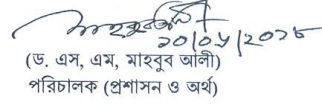 ২০/০৮/২০২৮
(ড. এস, এম, মাহবুব আলী)
পরিচালক (প্রশাসন ও অর্থ)